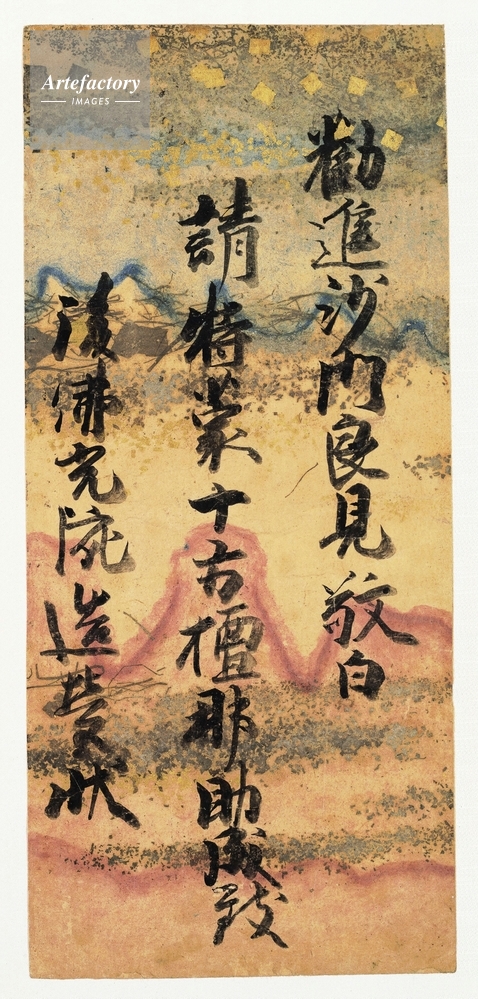 Artefactory
IMAGES
勸進沙門良見敬白
請特蒙十方檀那助成致
佛究院造營状